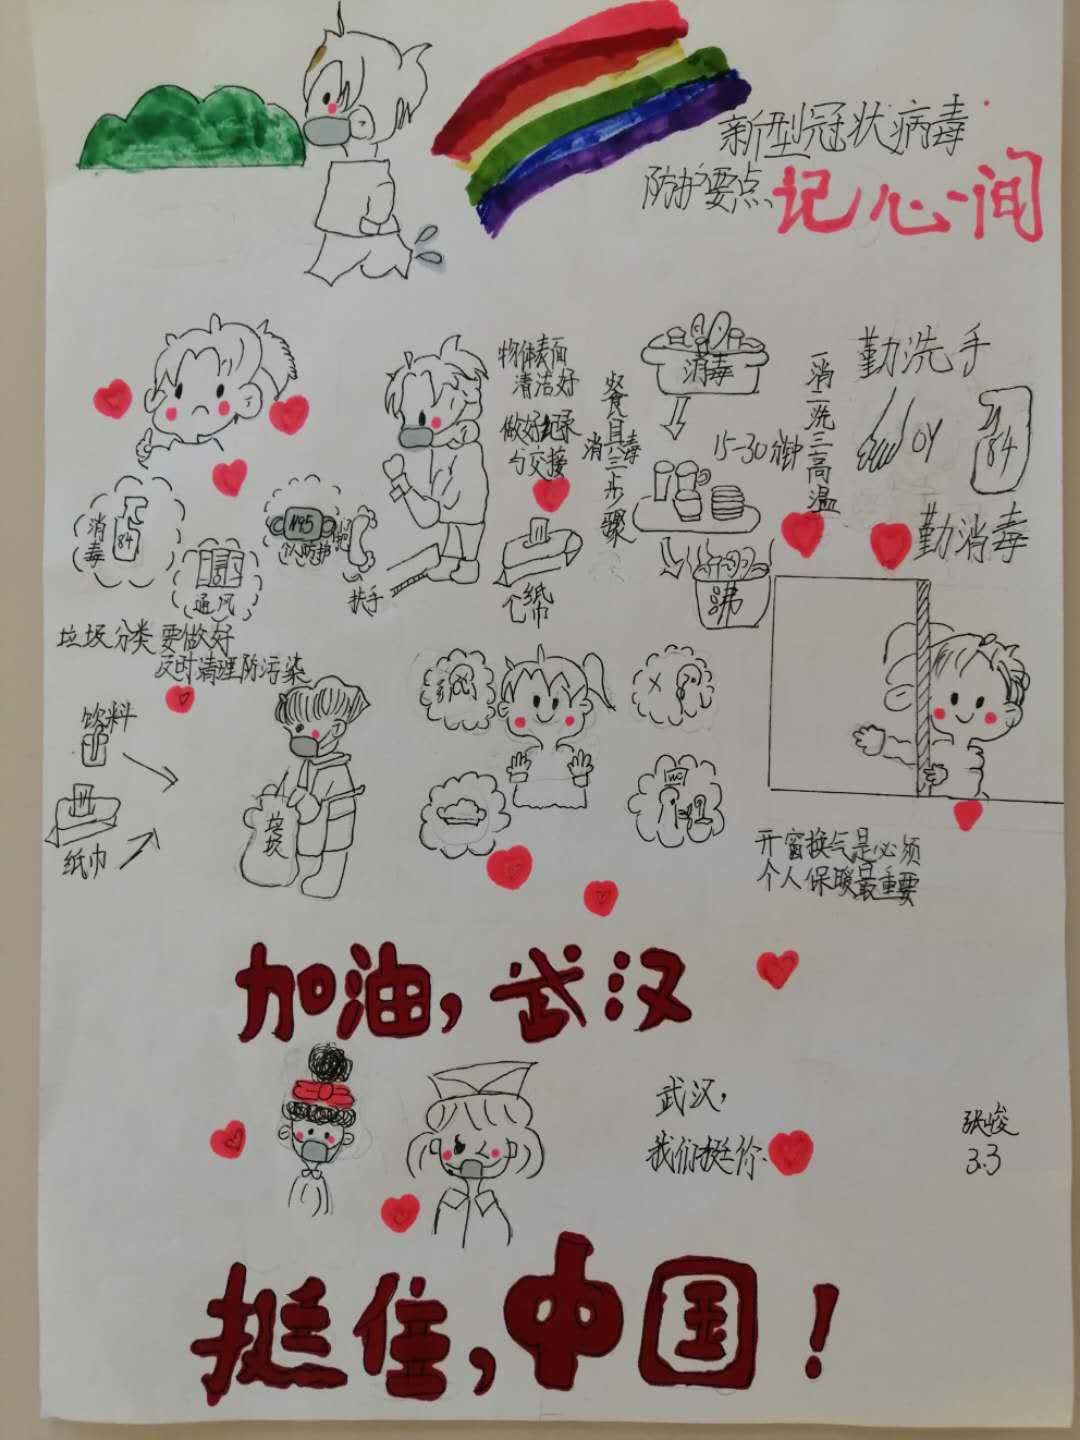 新型冠状病毒
防护要点记心间
物体表面
清洁好
做好纪录
勺交接
消毒
餐具三步骤
消毒
15-30分钟
一消二洗三高温
沸
勤洗手
or
84
勤消毒
消毒
84
通风
N95
个人防护
扶手
纸巾
垃圾分类要做好
及时清理防污染
饮料
纸巾
垃圾
WC
开窗换气是必须
个人保暖最重要
加油,武汉
武汉,
我们挺你
张峻
3.3
挺住,中国!